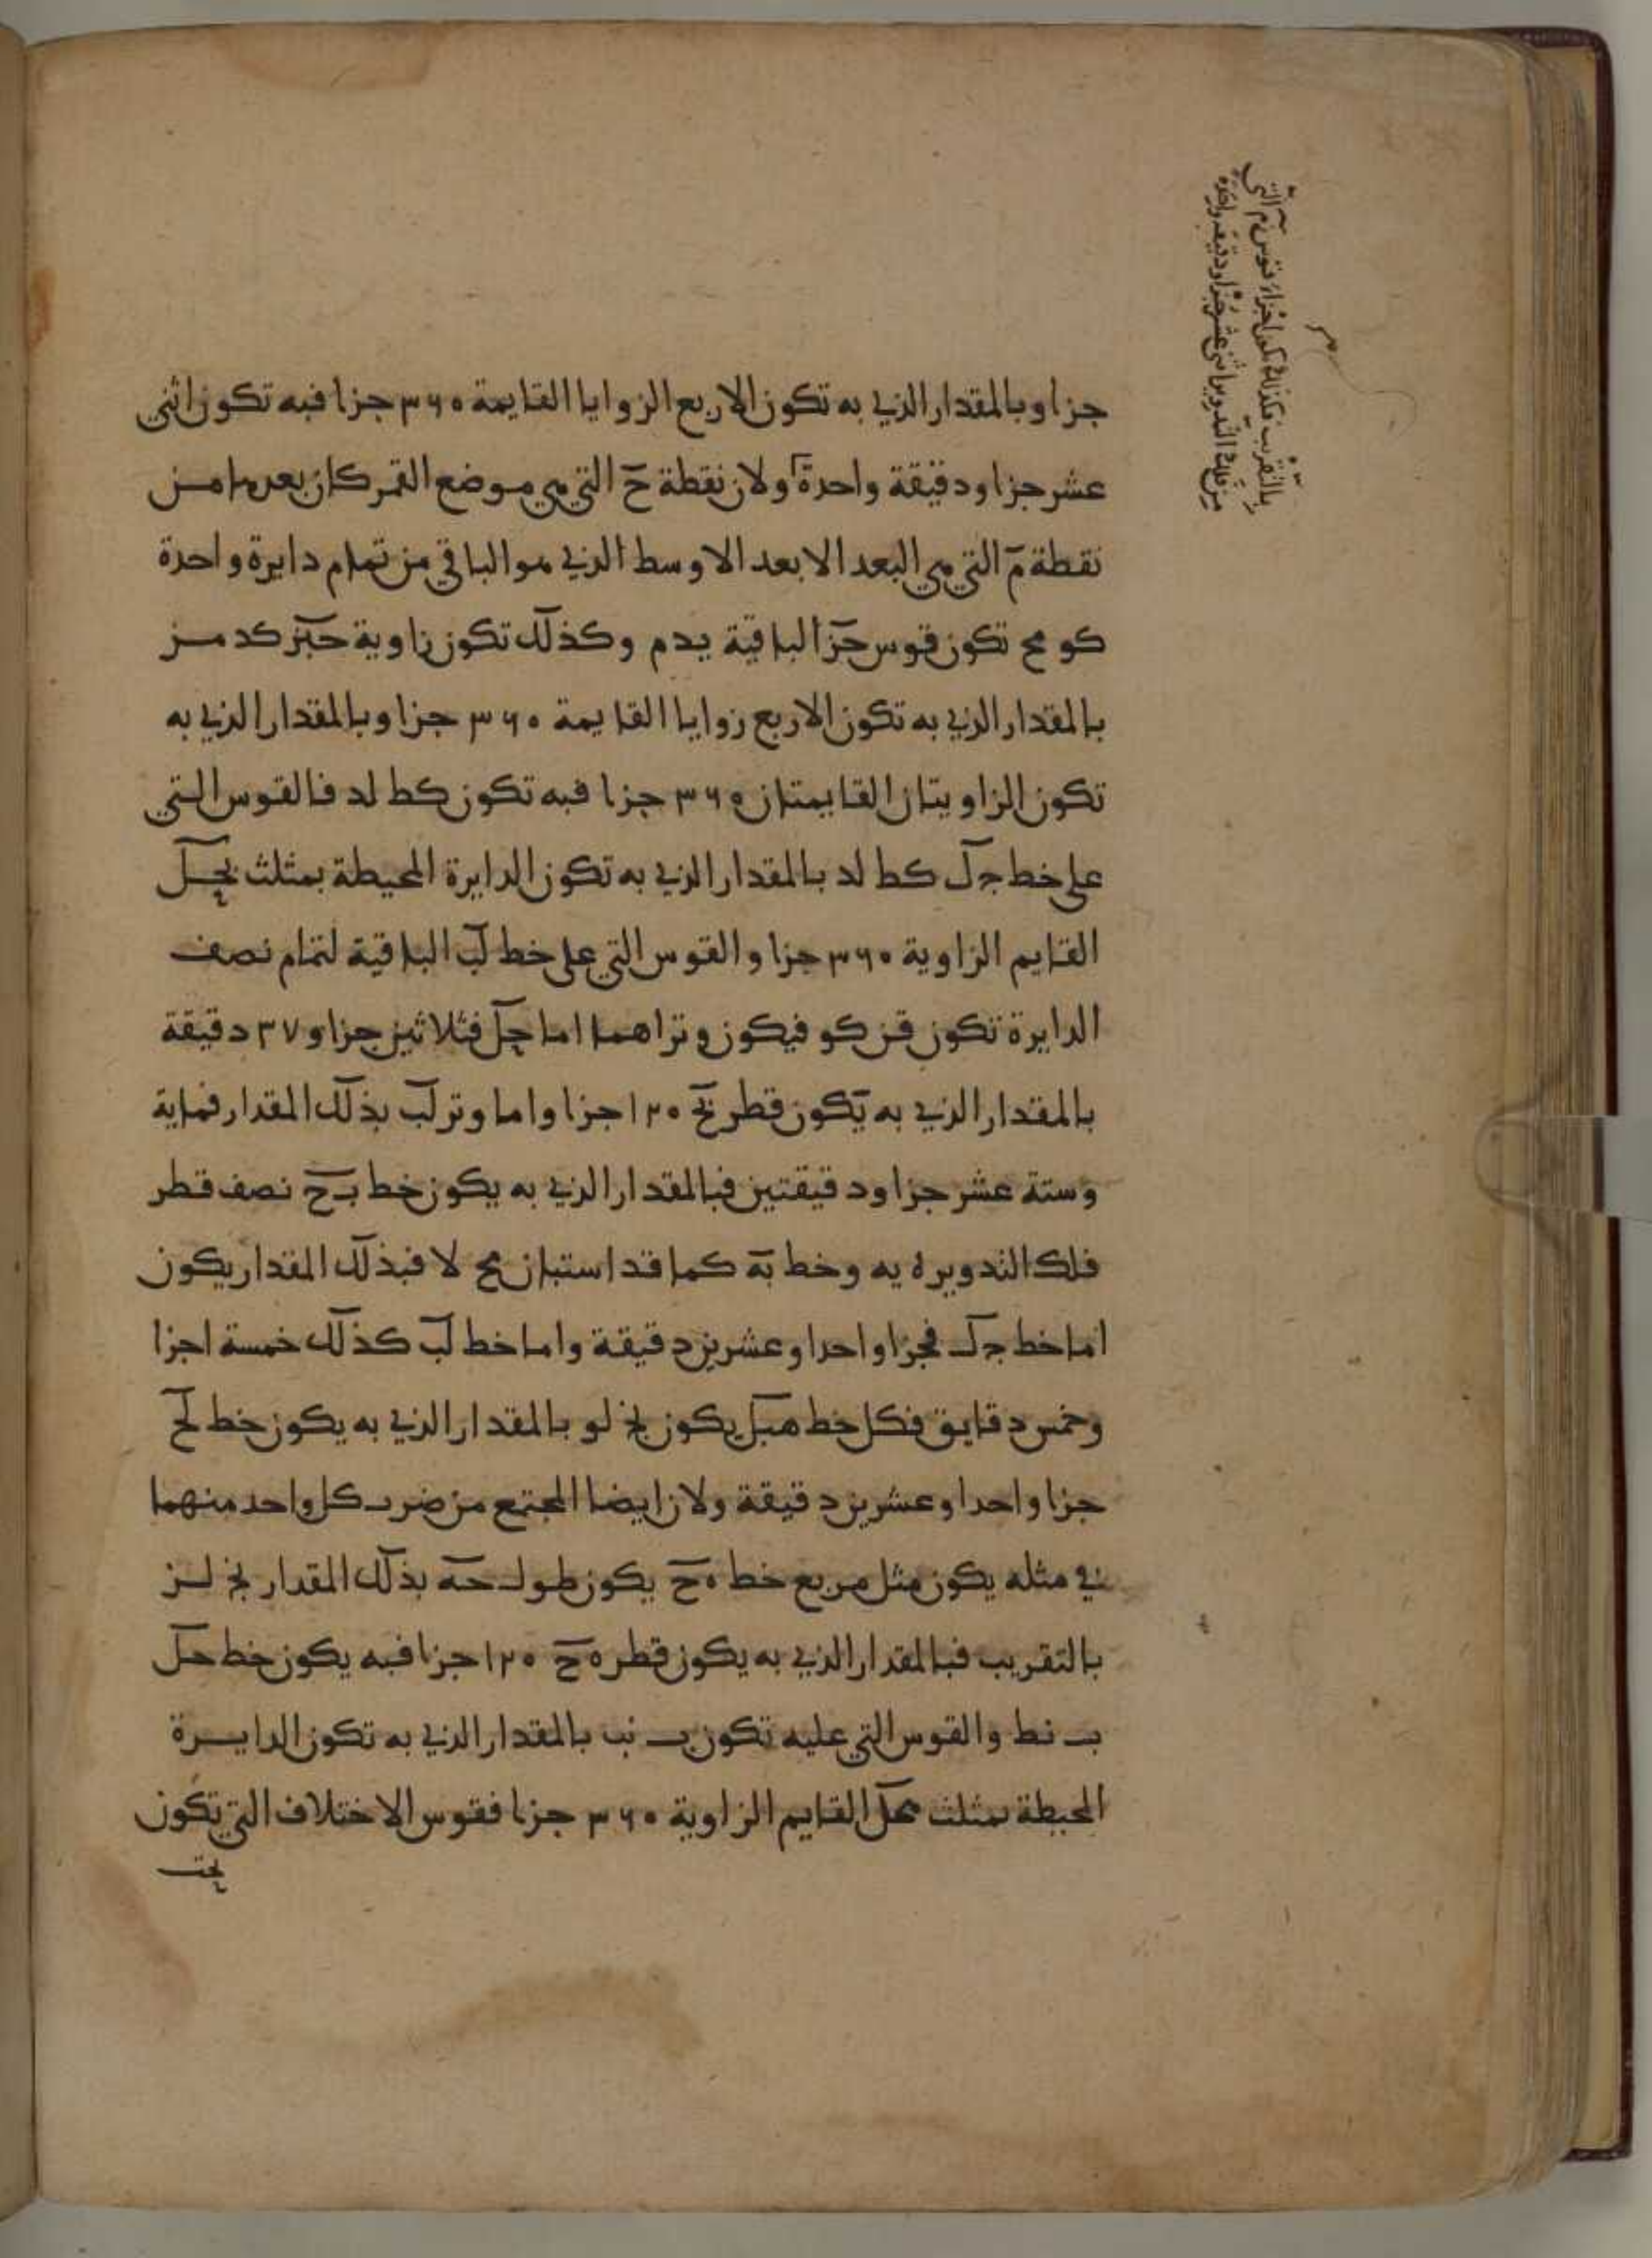 جزا وبالمقدار الذي به تكون الاربع الزوايا القايمة ٣٦٠ جزا فبه تكون اثني
عشر جزا ودقيقة واحدة ولان نقطة ح التي هي موضع القمر كان بعدها من
نقطة م التي هي البعد الابعد الاوسط الذي هو الباقي من تمام دايرة واحدة
كو مح تكون قوس حز الباقية يد م وكذلك تكون زاوية حبز كد من
بالمقدار الذي به تكون الاربع زوايا القايمة ٣٦٠ جزا وبالمقدار الذي به
تكون الزاويتان القايمتان ٣٦٠ جزا فبه تكون كط لد فالقوس التي
على خط حل كط لد بالمقدار الذي به تكون الدايرة المحيطة بمثلث بحل
القايم الزاوية ٣٦٠ جزا والقوس التي على خط لب الباقية لتمام نصف
الدايرة تكون قن كو فيكون وتراهما اما حل فثلاثين جزا و ٣٧ دقيقة
بالمقدار الذي به يكون قطر بح ١٢٠ جزا واما وتر لب بذلك المقدار فماية
وستة عشر جزا ودقيقتين فبالمقدار الذي به يكون خط بح نصف قطر
فلك التدوير ه يه وخط به كما قد استبان مح لا فبذلك المقدار يكون
اما خط حل فجزا واحدا وعشرين دقيقة واما خط لب كذلك خمسة اجزا
وخمس دقايق فكل خط هبل يكون نج لو بالمقدار الذي به يكون خط لح
جزا واحدا وعشرين دقيقة ولان ايضا المجتمع من ضرب كل واحد منهما
في مثله يكون مثل مربع خط ه ح يكون طول حه بذلك المقدار نج لز
بالتقريب فبالمقدار الذي به يكون قطر ه ح ١٢٠ جزا فبه يكون خط حل
ب نط والقوس التي عليه تكون ب نب بالمقدار الذي به تكون الدايرة
المحيطة بمثلث هحل القايم الزاوية ٣٦٠ جزا فقوس الاختلاف التي تكون
بالتقريب فكذلك تكون اجزاء قوس زم التي
من فلك التدوير اثني عشر جزا ودقيقة واحدة